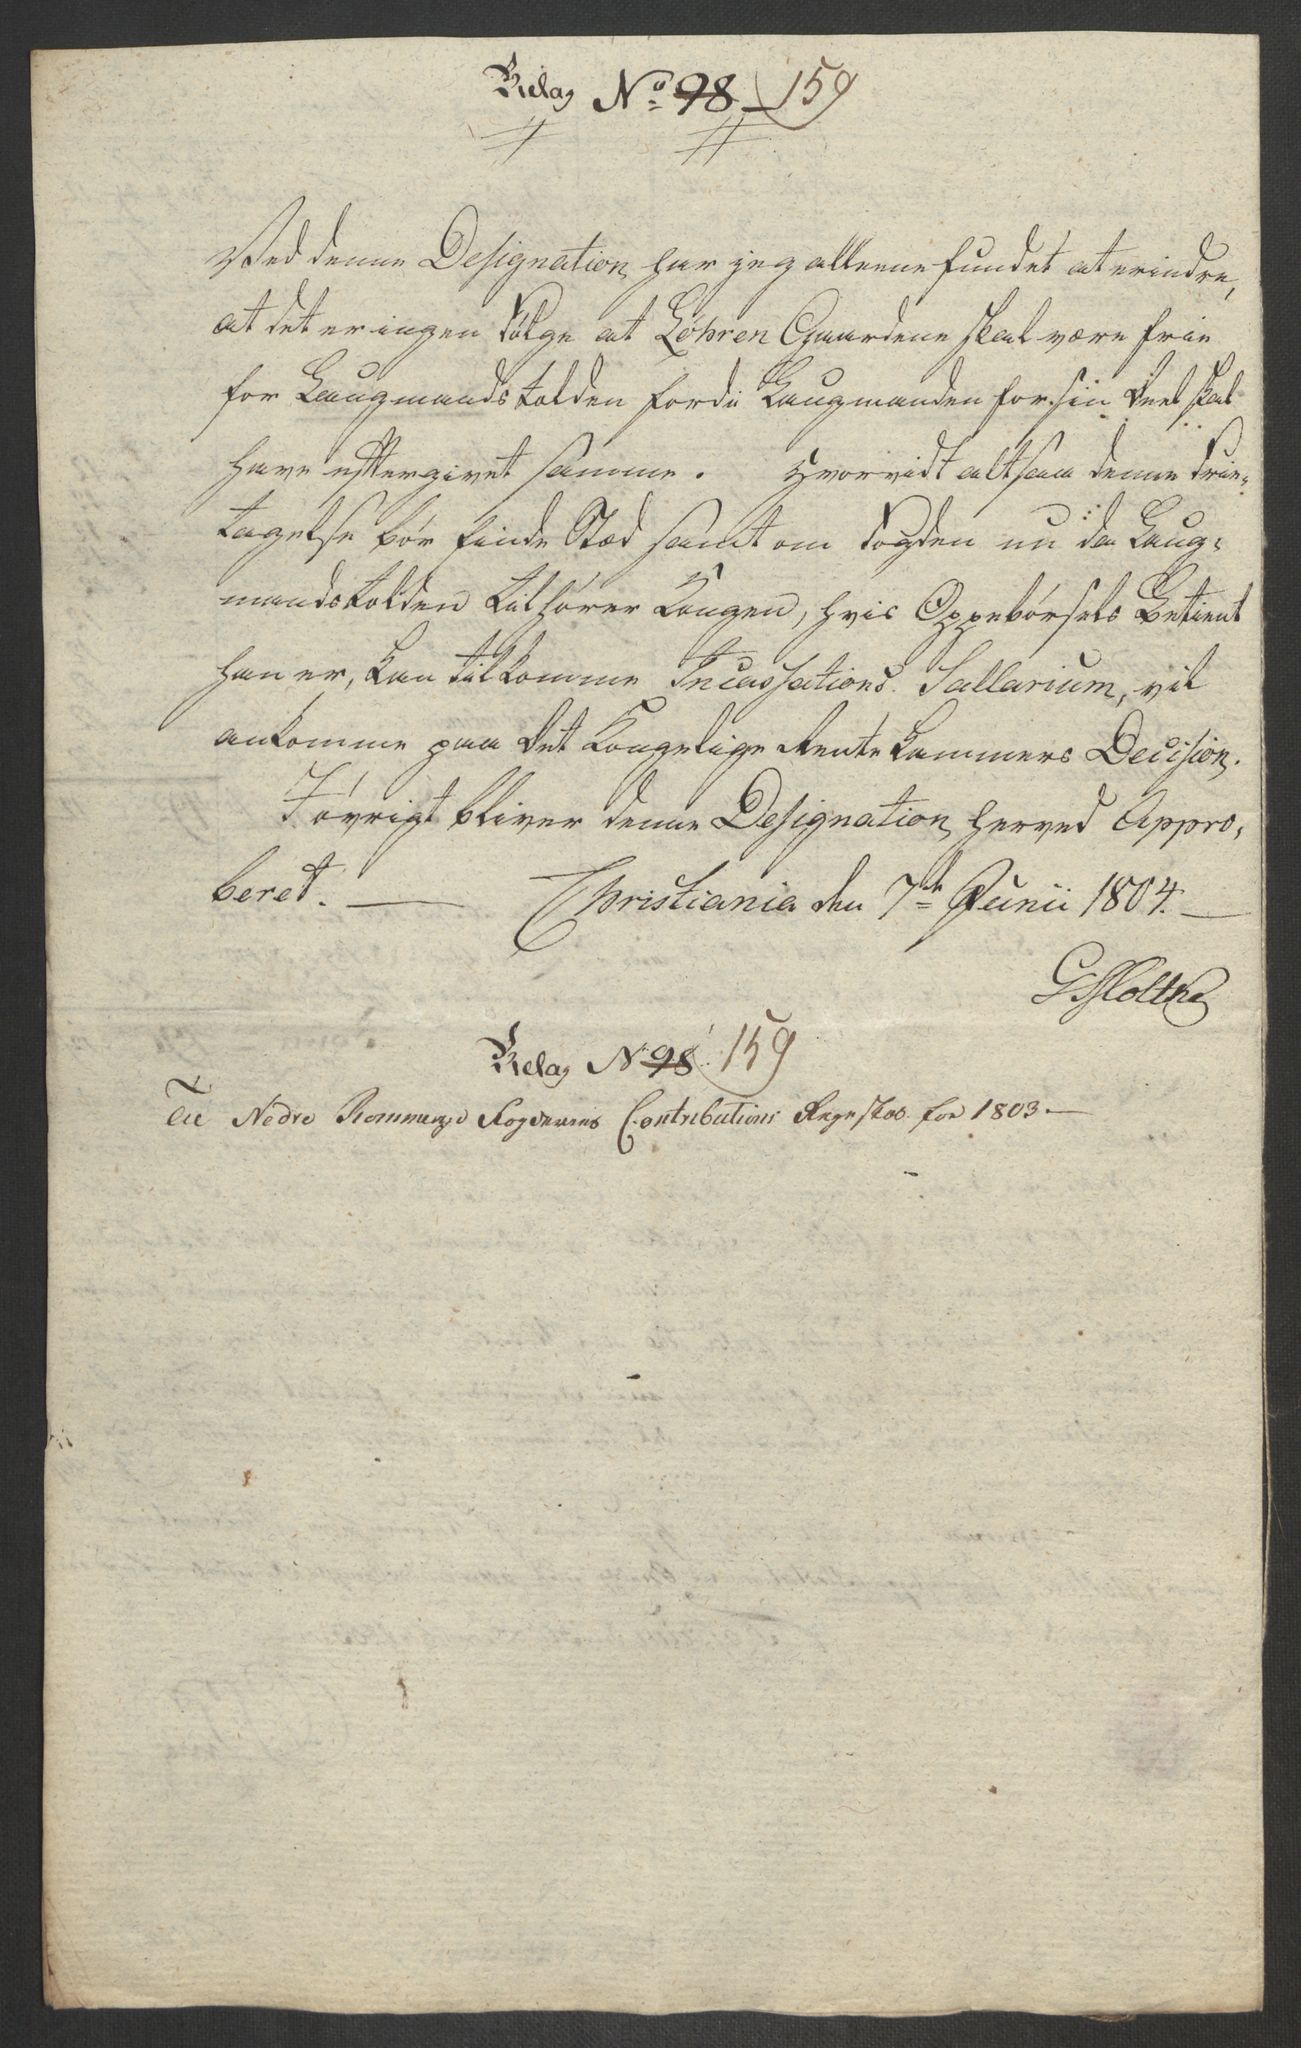 Bielag No 98 159
Ved denne Designation har jeg alleene fundet at erindre,
at det er ingen Følge at Løhren Gaardene skal være frie
for Laugmandstolden fordi Laugmanden for sin Deel skal
have eftergivet samme. Hvorvidt altsaa denne Frie-
tagelse bør finde Stæd samt om Fogden nu da Laug-
mandstolden tilhører Kongen, hvis Oppebørsels Betient
han er, kan tilkomme Incassations Sallarium, vil
ankomme paa det Kongelige Rente Kammers Decision.
I øvrigt bliver denne Designation herved Appro-
beret. Christiania den 7de Junii 1804.
G Moltke
Bielag No 98 159
Til Nedre Rommerige Fogderies Contributions Regnskab for 1803.